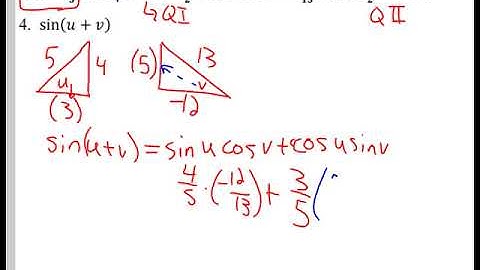 QI
QII
4. sin(u + v)
5 4 (5) 13
u v
(3) -12
sin(u+v) = sin u cos v + cos u sin v
4/5 · (-12/13) + 3/5 (